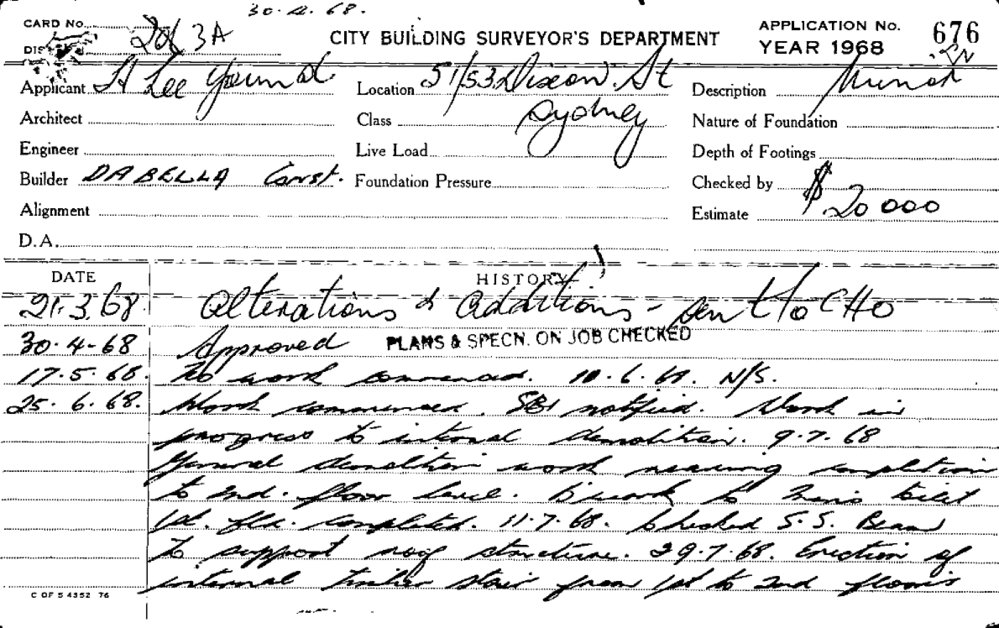 30.4.68.
CARD No. 20/3A
CITY BUILDING SURVEYOR'S DEPARTMENT
APPLICATION No. 676
YEAR 1968
Applicant Lee Location 51/53 Dixon St Description
Architect Class Sydney Nature of Foundation
Engineer Live Load Depth of Footings
Builder DABELLA Const. Foundation Pressure Checked by
Alignment Estimate $20 000
D.A.
DATE HISTORY
21.3.68 Alterations & additions - sent to CHO
30.4-68 Approved PLANS & SPECN. ON JOB CHECKED
17.5.68. No work commenced. 10.6.68. N/S.
25.6.68. Work commenced. SBI notified. Work in
progress to internal demolition. 9.7.68
General demolition work nearing completion
to 2nd. floor level. B'work to men's toilet
1st. flr. completed. 11.7.68. Checked S.S. Beam
to support roof structure. 29.7.68. Erection of
internal timber stair from 1st to 2nd floors
C OF S 4352 76